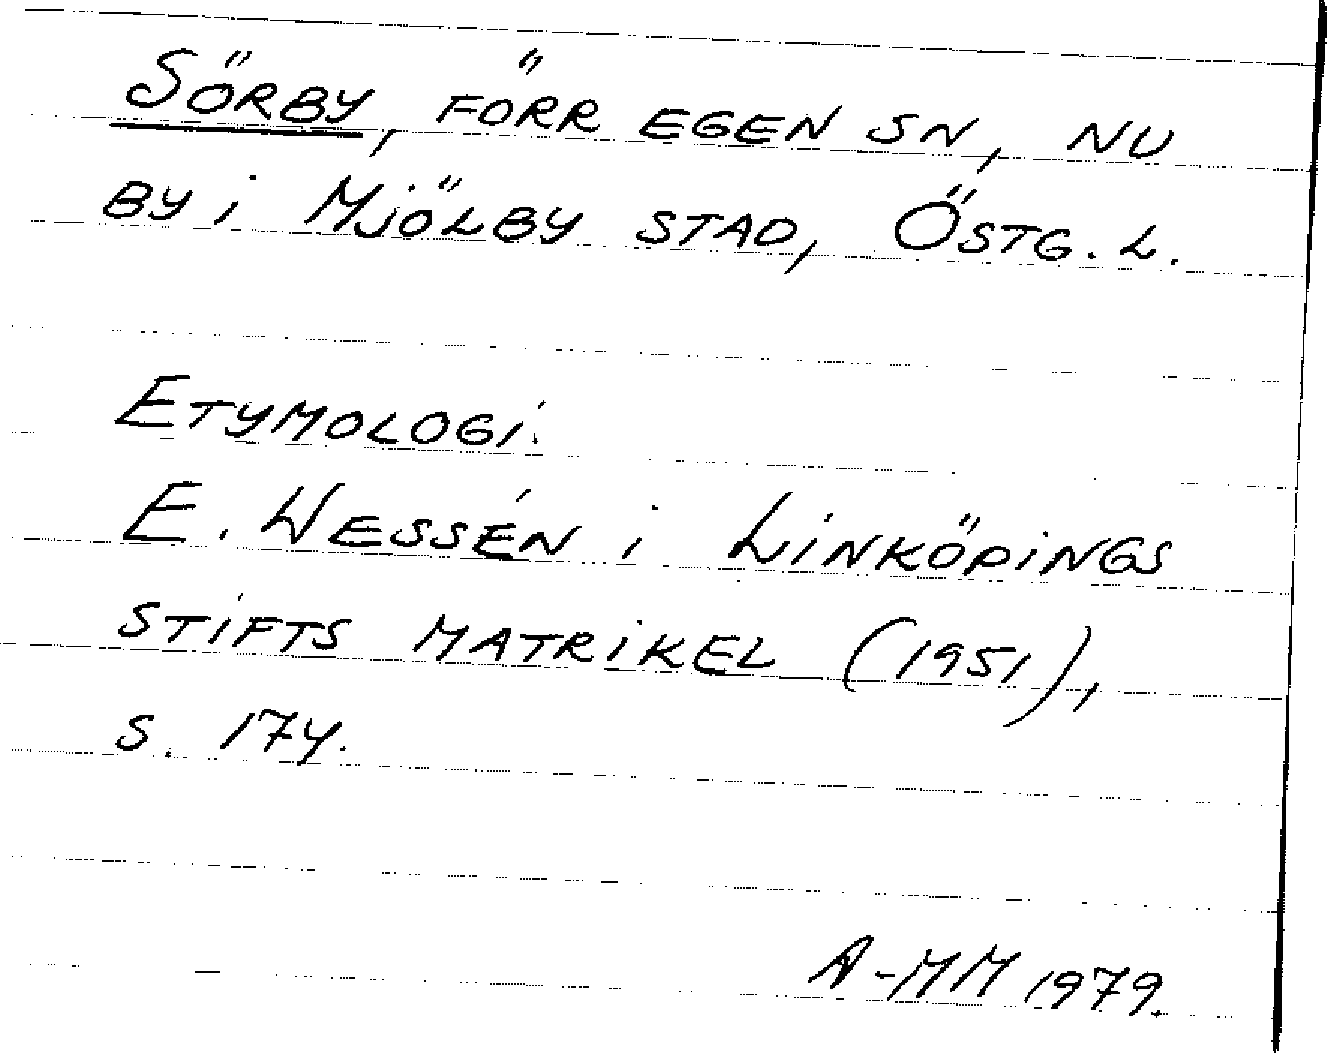 SÖRBY, FÖRR EGEN SN, NU
BY i MJÖLBY STAD, ÖSTG. L.
ETYMOLOGI.
E. WESSÉN i LINKÖPINGS
STIFTS MATRIKEL (1951),
S. 174.
A-MM 1979.